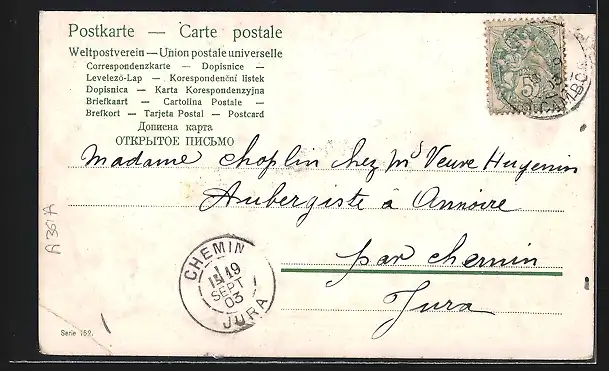 Postkarte — Carte postale
Weltpostverein — Union postale universelle
Correspondenzkarte — Dopisnice —
Levelező-Lap — Korespondenční listek
Dopisnica — Karta Korespondenzyjna
Briefkaart — Cartolina Postale —
Brefkort — Tarjeta Postal — Postcard
Дописна карта
ОТКРЫТОЕ ПИСЬМО
5
Madame Choplin chez Ms Veuve Hugenin
Aubergiste à Annoire
par chemin
Jura
CHEMIN
19
SEPT
03
JURA
Serie 152.